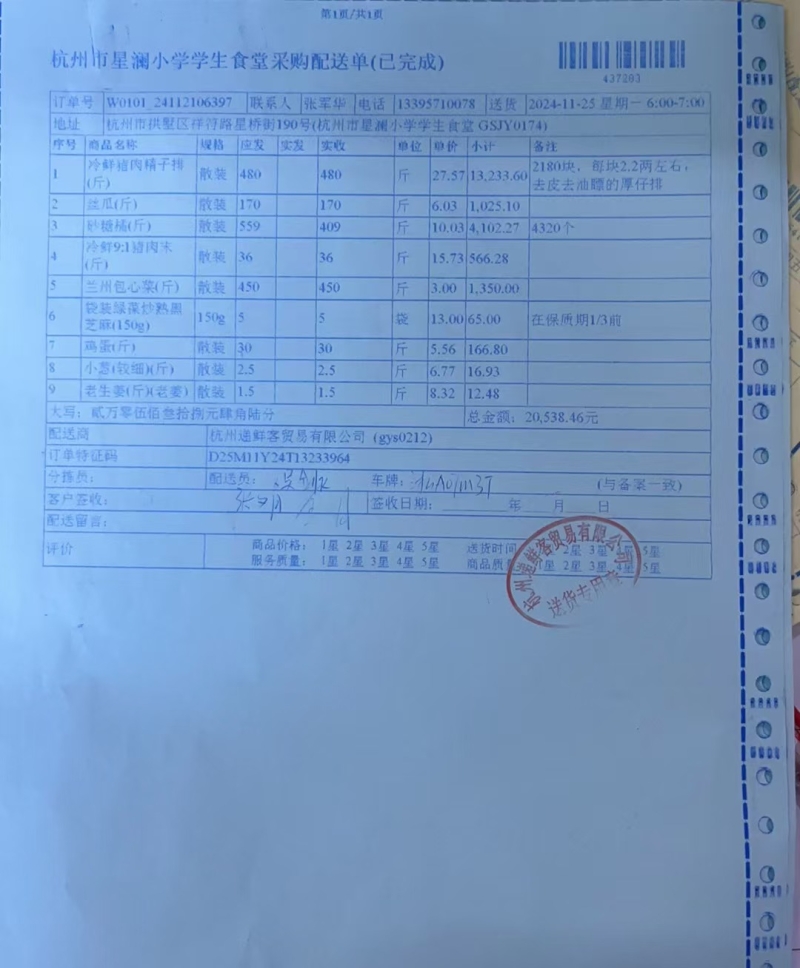 第1页/共1页
杭州市星澜小学学生食堂采购配送单(已完成)
437293
订单号 W0101_24112106397 联系人 张军华 电话 13395710078 送货 2024-11-25 星期一 6:00-7:00
地址 杭州市拱墅区祥符路星桥街190号(杭州市星澜小学学生食堂 GSJY0174)
序号 商品名称 规格 应发 实发 实收 单位 单价 小计 备注
1 冷鲜猪肉精仔排(斤) 散装 480 480 斤 27.57 13,233.60 2180块，每块2.2两左右，去皮去油膘的厚仔排
2 丝瓜(斤) 散装 170 170 斤 6.03 1,025.10
3 砂糖橘(斤) 散装 559 409 斤 10.03 4,102.27 4320个
4 冷鲜9:1猪肉末(斤) 散装 36 36 斤 15.73 566.28
5 兰州包心菜(斤) 散装 450 450 斤 3.00 1,350.00
6 袋装绿葆炒熟黑芝麻(150g) 150g 5 5 袋 13.00 65.00 在保质期1/3前
7 鸡蛋(斤) 散装 30 30 斤 5.56 166.80
8 小葱(较细)(斤) 散装 2.5 2.5 斤 6.77 16.93
9 老生姜(斤)(老姜) 散装 1.5 1.5 斤 8.32 12.48
大写：贰万零伍佰叁拾捌元肆角陆分 总金额：20,538.46元
配送商 杭州递鲜客贸易有限公司 (gys0212)
订单特征码 D25M11Y24T13233964
分拣员： 配送员： 车牌： (与备案一致)
客户签收： 签收日期： 年 月 日
配送留言：
评价 商品价格： 1星 2星 3星 4星 5星 送货时间 2星 3星 4星 5星
服务质量： 1星 2星 3星 4星 5星 商品质 1星 2星 3星 4星 5星
杭州递鲜客贸易有限公司
送货专用章